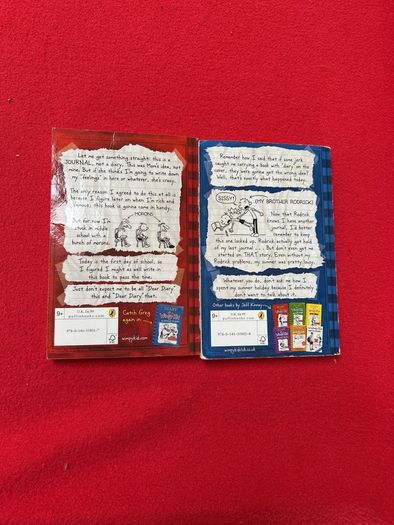 Let me get something straight: this is a
JOURNAL, not a diary. This was Mom's idea, not
mine. But if she thinks I'm going to write down
my "feelings" in here or whatever, she's crazy.
The only reason I agreed to do this at all is
because I figure later on when I'm rich and
famous, this book is gonna come in handy.
MORONS
But for now I'm
stuck in middle
school with a
bunch of morons.
Today is the first day of school, so
I figured I might as well write in
this book to pass the time.
Just don't expect me to be all "Dear Diary"
this and "Dear Diary" that.
9+
U.K. £6.99
puffinbooks.com
Catch Greg
again in
wimpykid.com
FSC
Remember how I said that if some jerk
caught me carrying a book with "diary" on the
cover, they were gonna get the wrong idea?
Well, that's exactly what happened today.
SISSY!
(MY BROTHER RODRICK)
Now that Rodrick
knows I have another
journal, I'd better
remember to keep
this one locked up. Rodrick actually got hold
of my last journal... But don't even get me
started on THAT story. Even without my
Rodrick problems, my summer was pretty lousy.
Whatever you do, don't ask me how I
spent my summer holiday because I definitely
don't want to talk about it.
Other books by Jeff Kinney
9+
U.K. £6.99
puffinbooks.com
wimpykid.co.uk
FSC